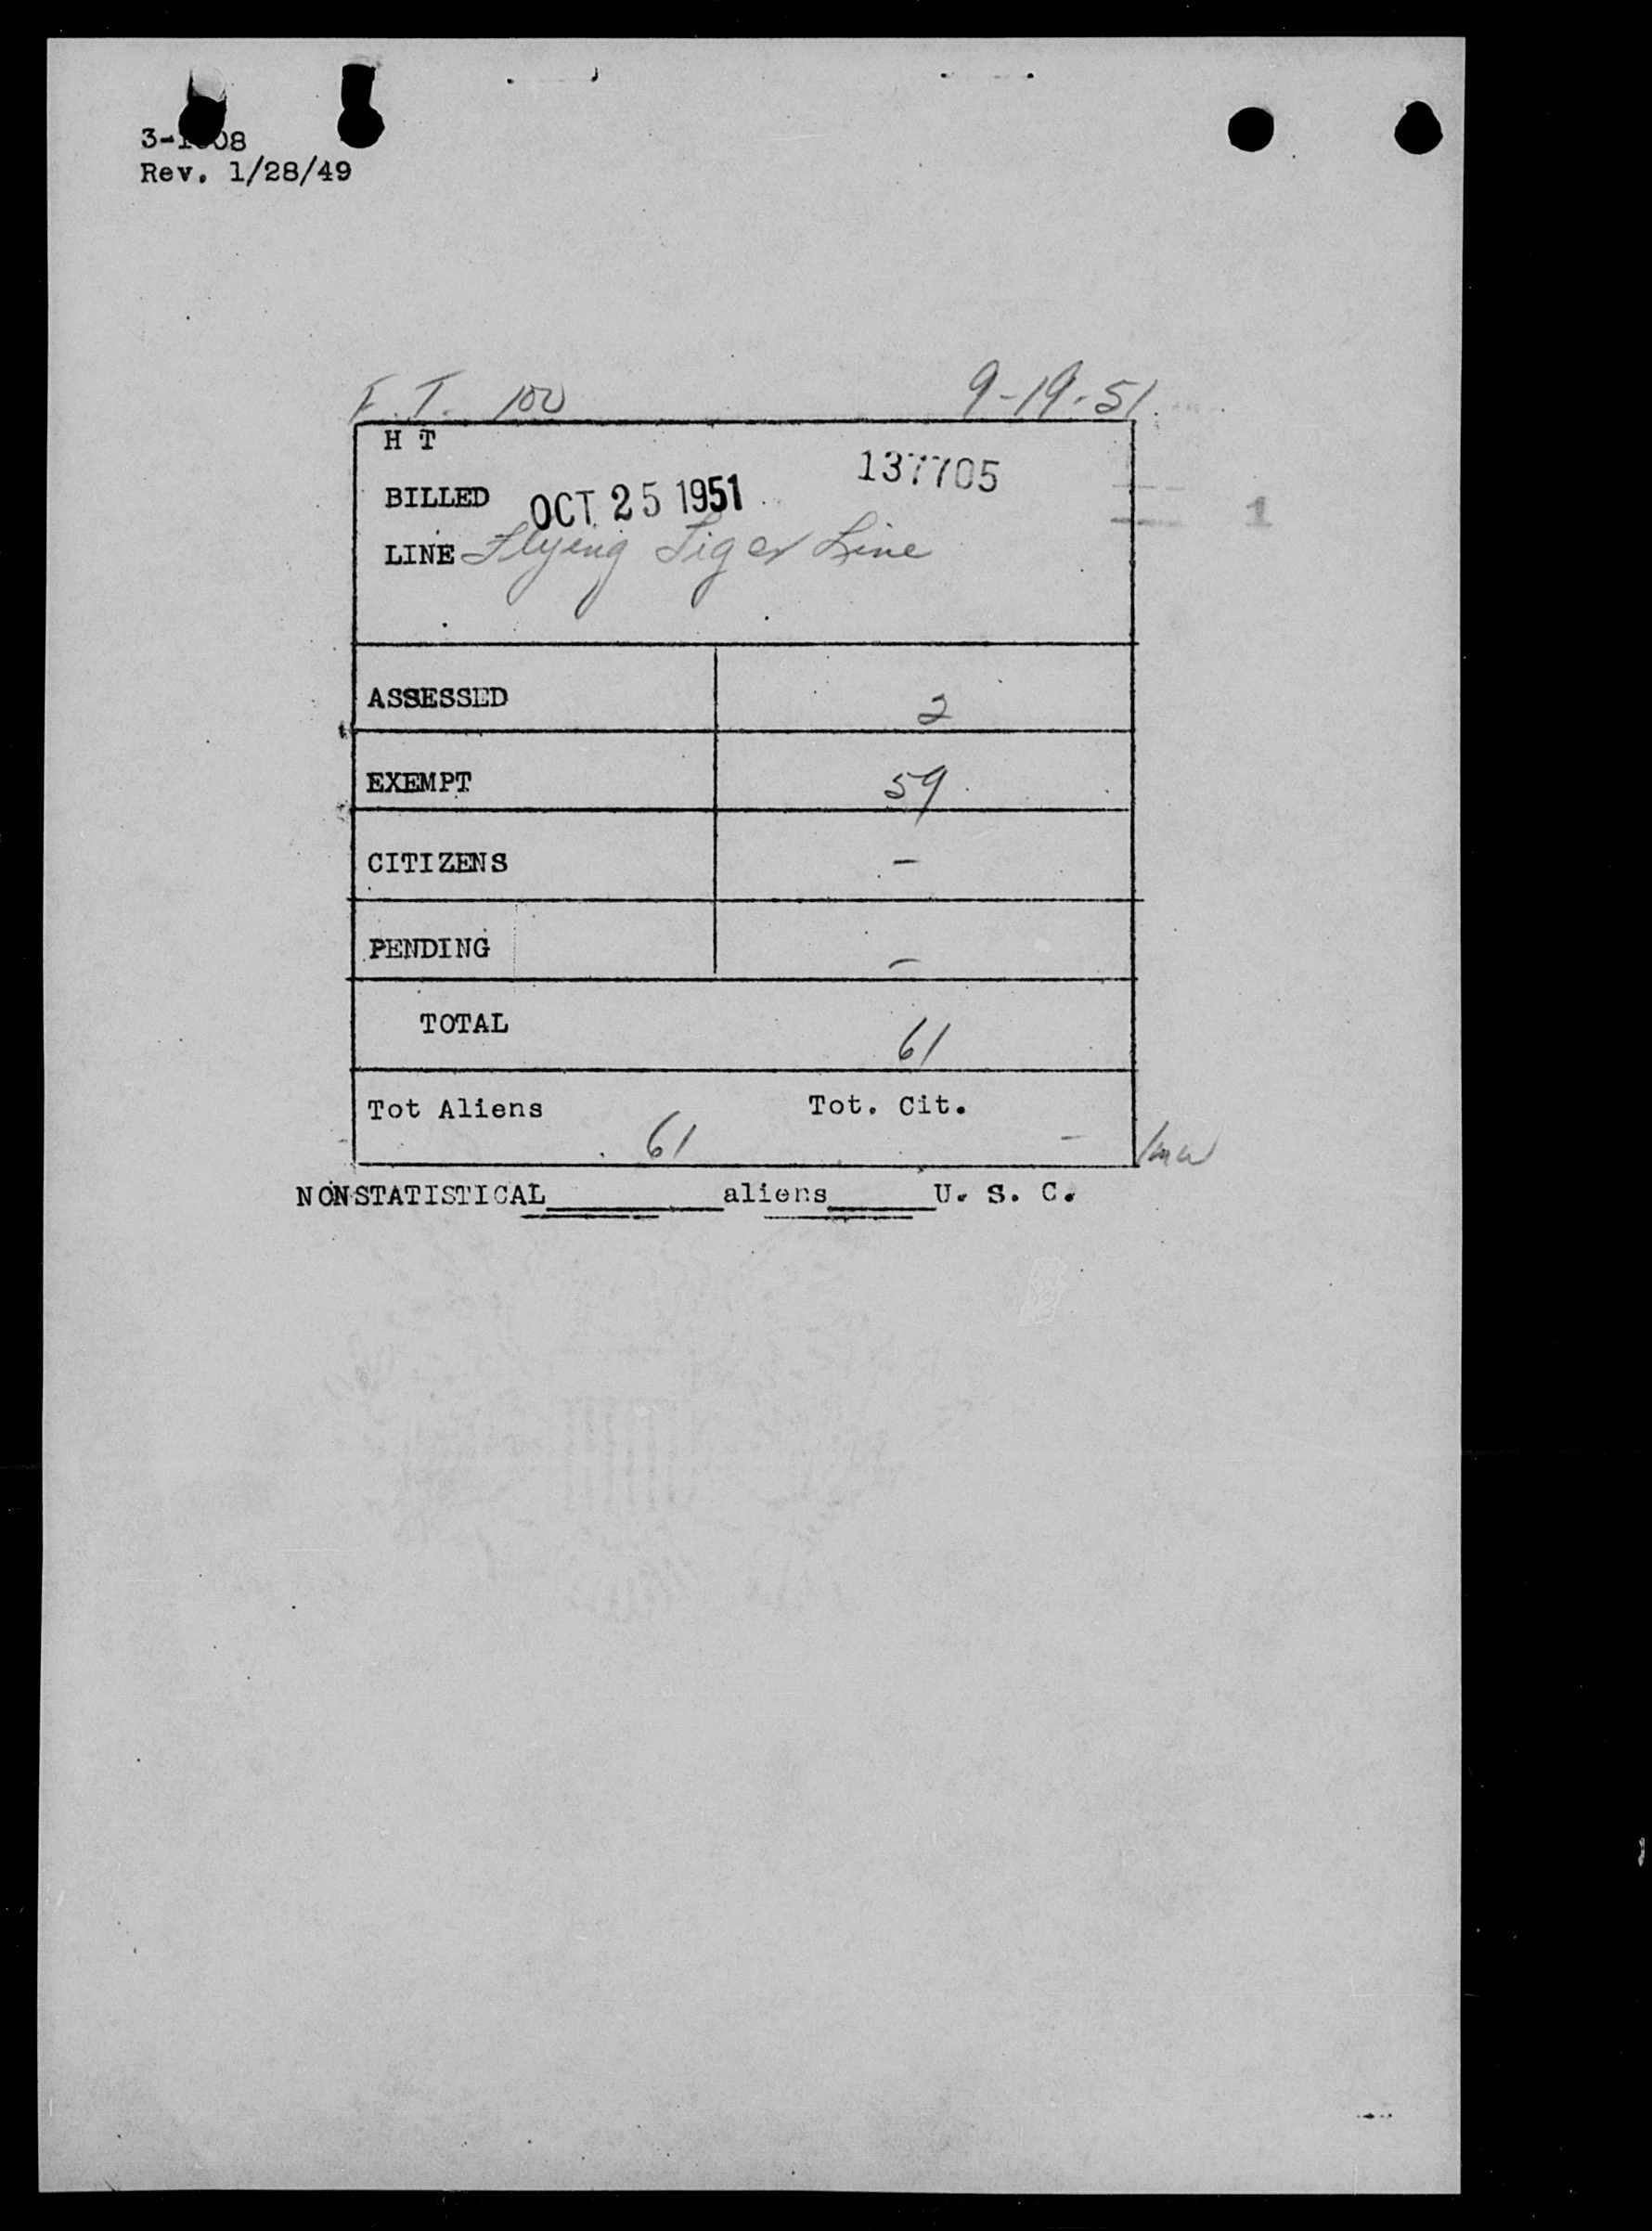 3-1 08
Rev. 1/28/49
F. T. 100 9-19-51
H T
137705
BILLED OCT 25 1951
LINE Flying Tiger Line
1
ASSESSED 2
EXEMPT 59
CITIZENS -
PENDING -
TOTAL 61
Tot Aliens 61 Tot. Cit. -
NONSTATISTICAL______aliens______U. S. C.